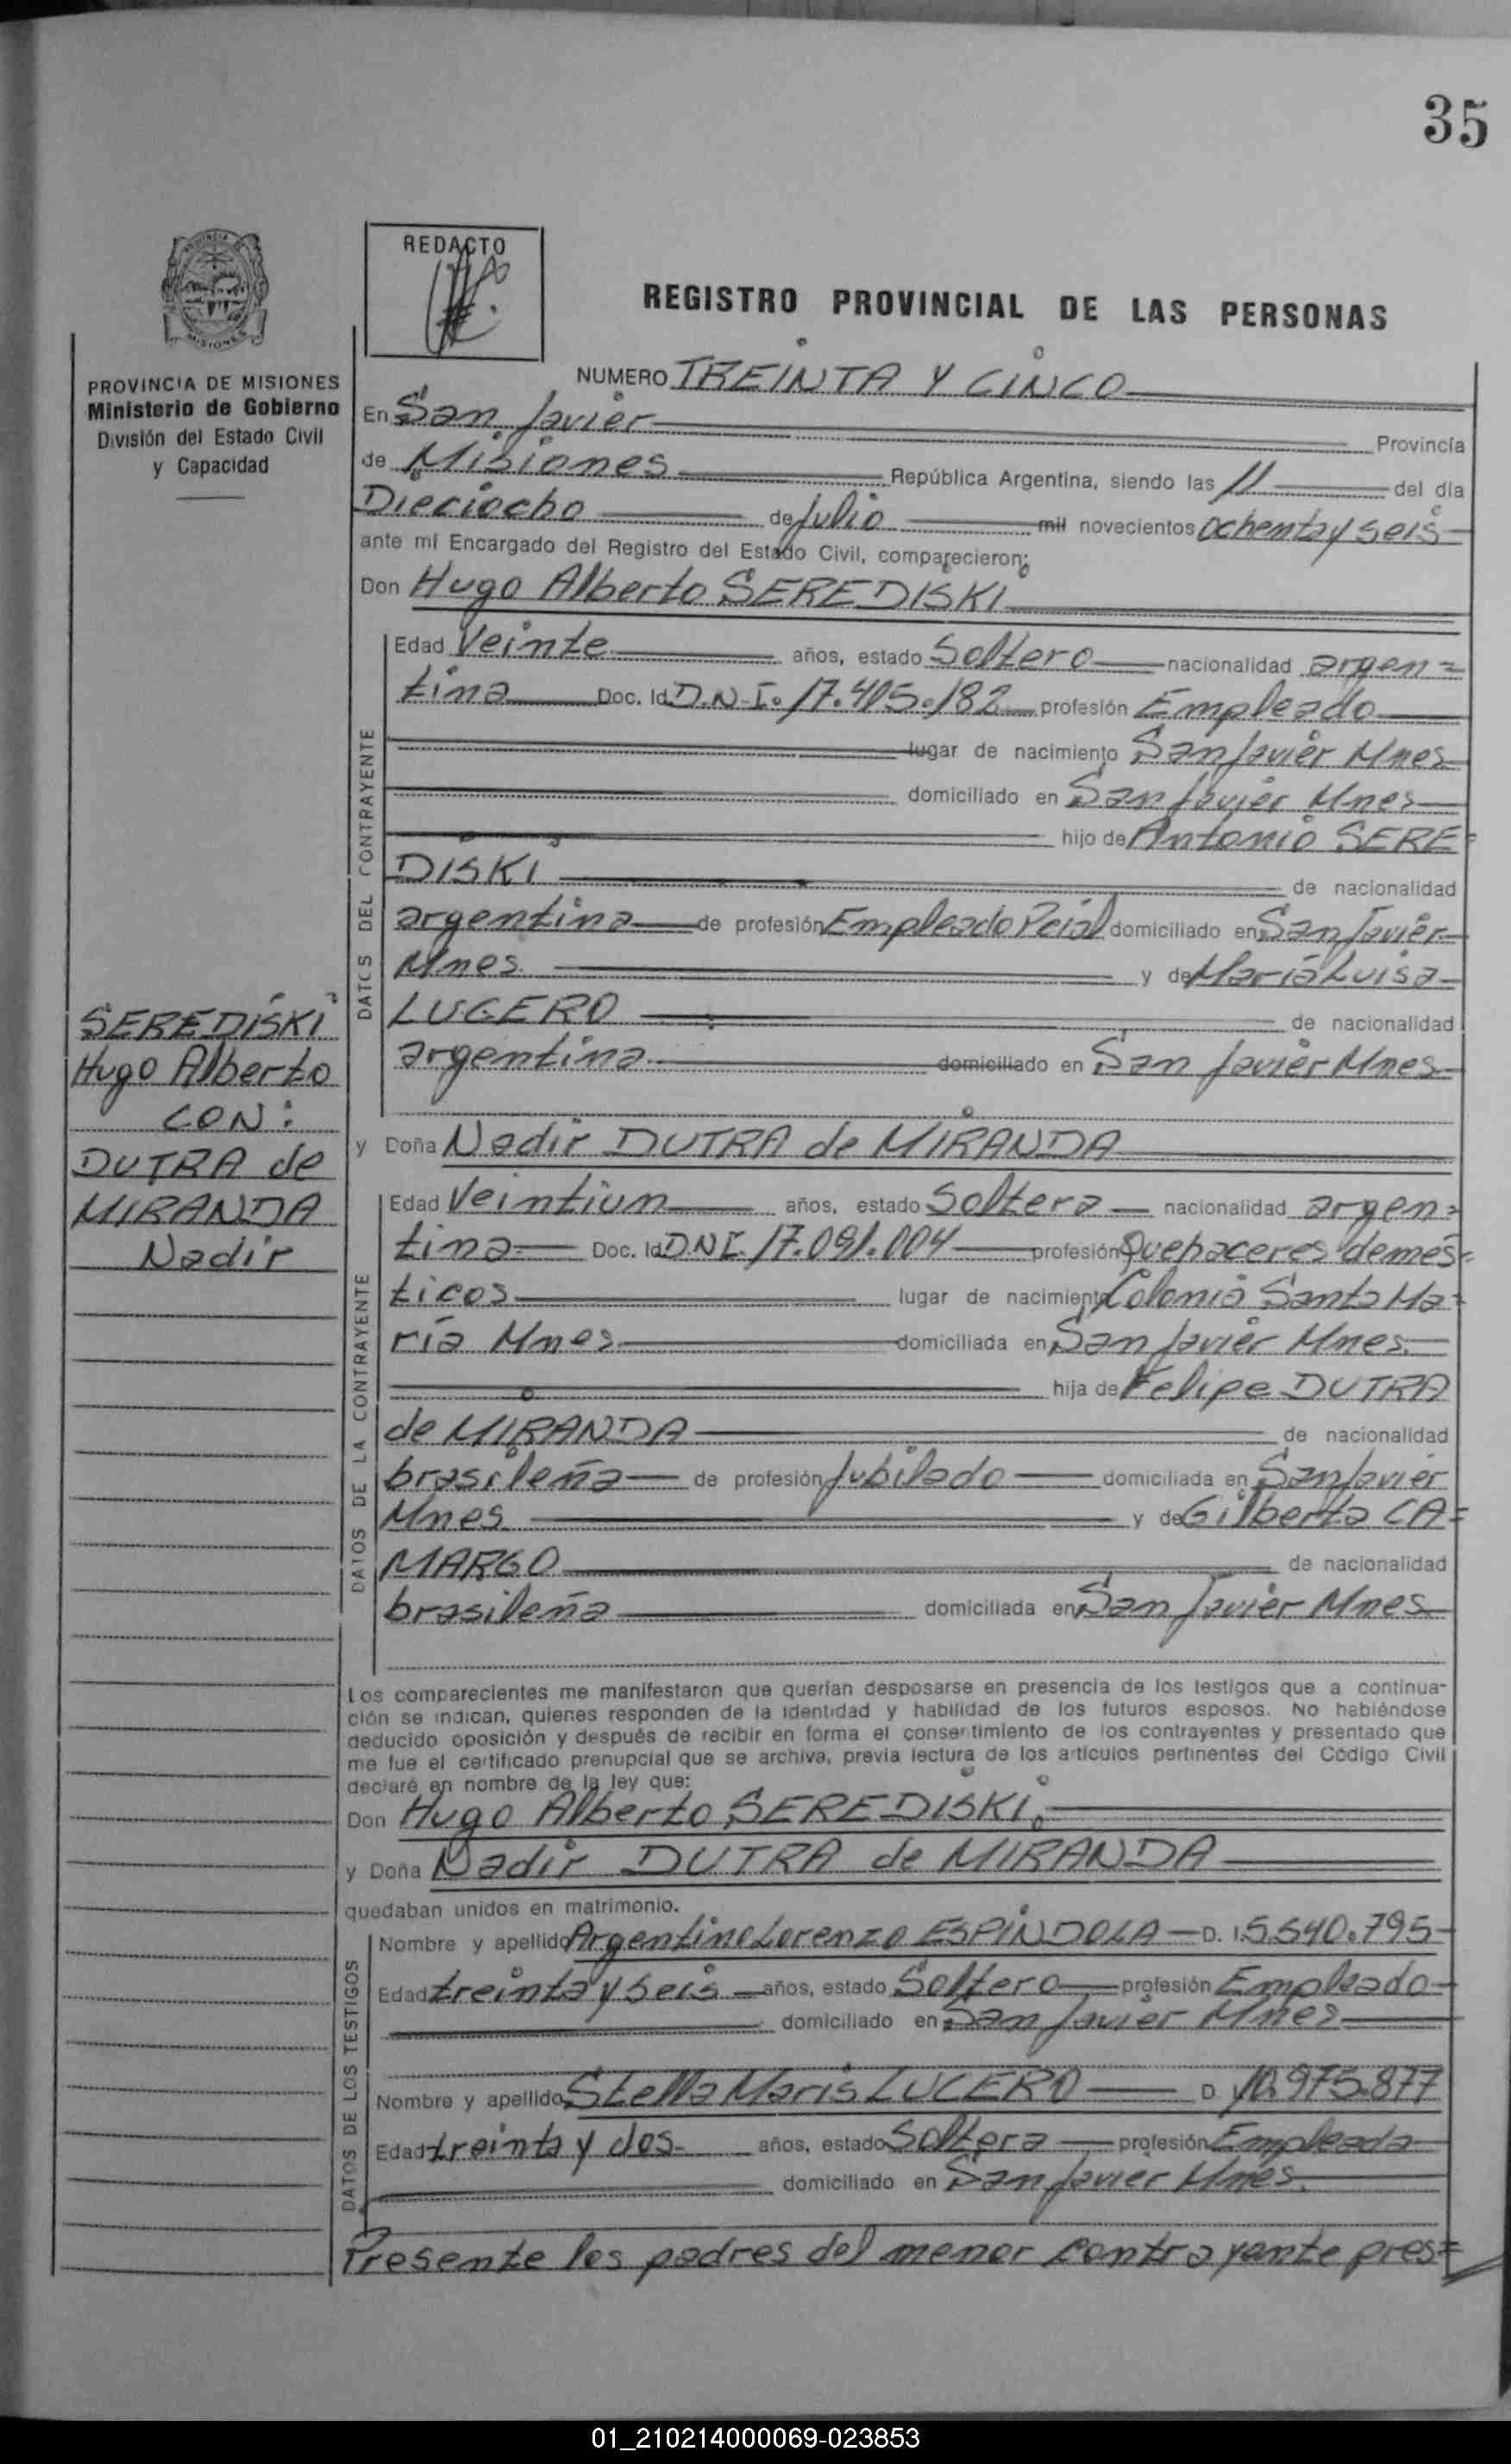 35
REDACTO
REGISTRO PROVINCIAL DE LAS PERSONAS
PROVINCIA DE MISIONES
Ministerio de Gobierno
División del Estado Civil
y Capacidad
NUMERO TREINTA Y CINCO
En San Javier Provincia
de Misiones República Argentina, siendo las 11 del día
Dieciocho de Julio mil novecientos ochenta y seis
ante mí Encargado del Registro del Estado Civil, comparecieron:
Don Hugo Alberto SEREDISKI
DATOS DEL CONTRAYENTE
Edad Veinte años, estado Soltero nacionalidad argen=
tina Doc. Id. D.N.I. 17.405.182 profesión Empleado
lugar de nacimiento San Javier Mnes
domiciliado en San Javier Mnes
hijo de Antonio SERE=
DISKI de nacionalidad
argentina de profesión Empleado Pcial domiciliado en San Javier
Mnes y de María Luisa
LUCERO de nacionalidad
argentina domiciliado en San Javier Mnes
SEREDISKI
Hugo Alberto
CON:
DUTRA de
MIRANDA
Nadir
y Doña Nadir DUTRA de MIRANDA
DATOS DE LA CONTRAYENTE
Edad Veintiun años, estado Soltera nacionalidad argen=
tina Doc. Id. D.N.I. 17.091.004 profesión Quehaceres demés=
ticos lugar de nacimiento Colonia Santa Ma=
ría Mnes domiciliada en San Javier Mnes
hija de Felipe DUTRA
de MIRANDA de nacionalidad
brasileña de profesión Jubilado domiciliada en San Javier
Mnes y de Gilberta CA=
MARGO de nacionalidad
brasileña domiciliada en San Javier Mnes
Los comparecientes me manifestaron que querían desposarse en presencia de los testigos que a continua-
ción se indican, quienes responden de la identidad y habilidad de los futuros esposos. No habiéndose
deducido oposición y después de recibir en forma el consentimiento de los contrayentes y presentado que
me fue el certificado prenupcial que se archiva, previa lectura de los artículos pertinentes del Código Civil
declaré en nombre de la ley que:
Don Hugo Alberto SEREDISKI
y Doña Nadir DUTRA de MIRANDA
quedaban unidos en matrimonio.
DATOS DE LOS TESTIGOS
Nombre y apellido Argentino Lorenzo ESPINDOLA D. 15.540.795
Edad treinta y seis años, estado Soltero profesión Empleado
domiciliado en San Javier Mnes
Nombre y apellido Stella Maris LUCERO D. 10.975.877
Edad treinta y dos años, estado Soltera profesión Empleada
domiciliado en San Javier Mnes.
Presente los padres del menor contrayente pres=
01_210214000069-023853